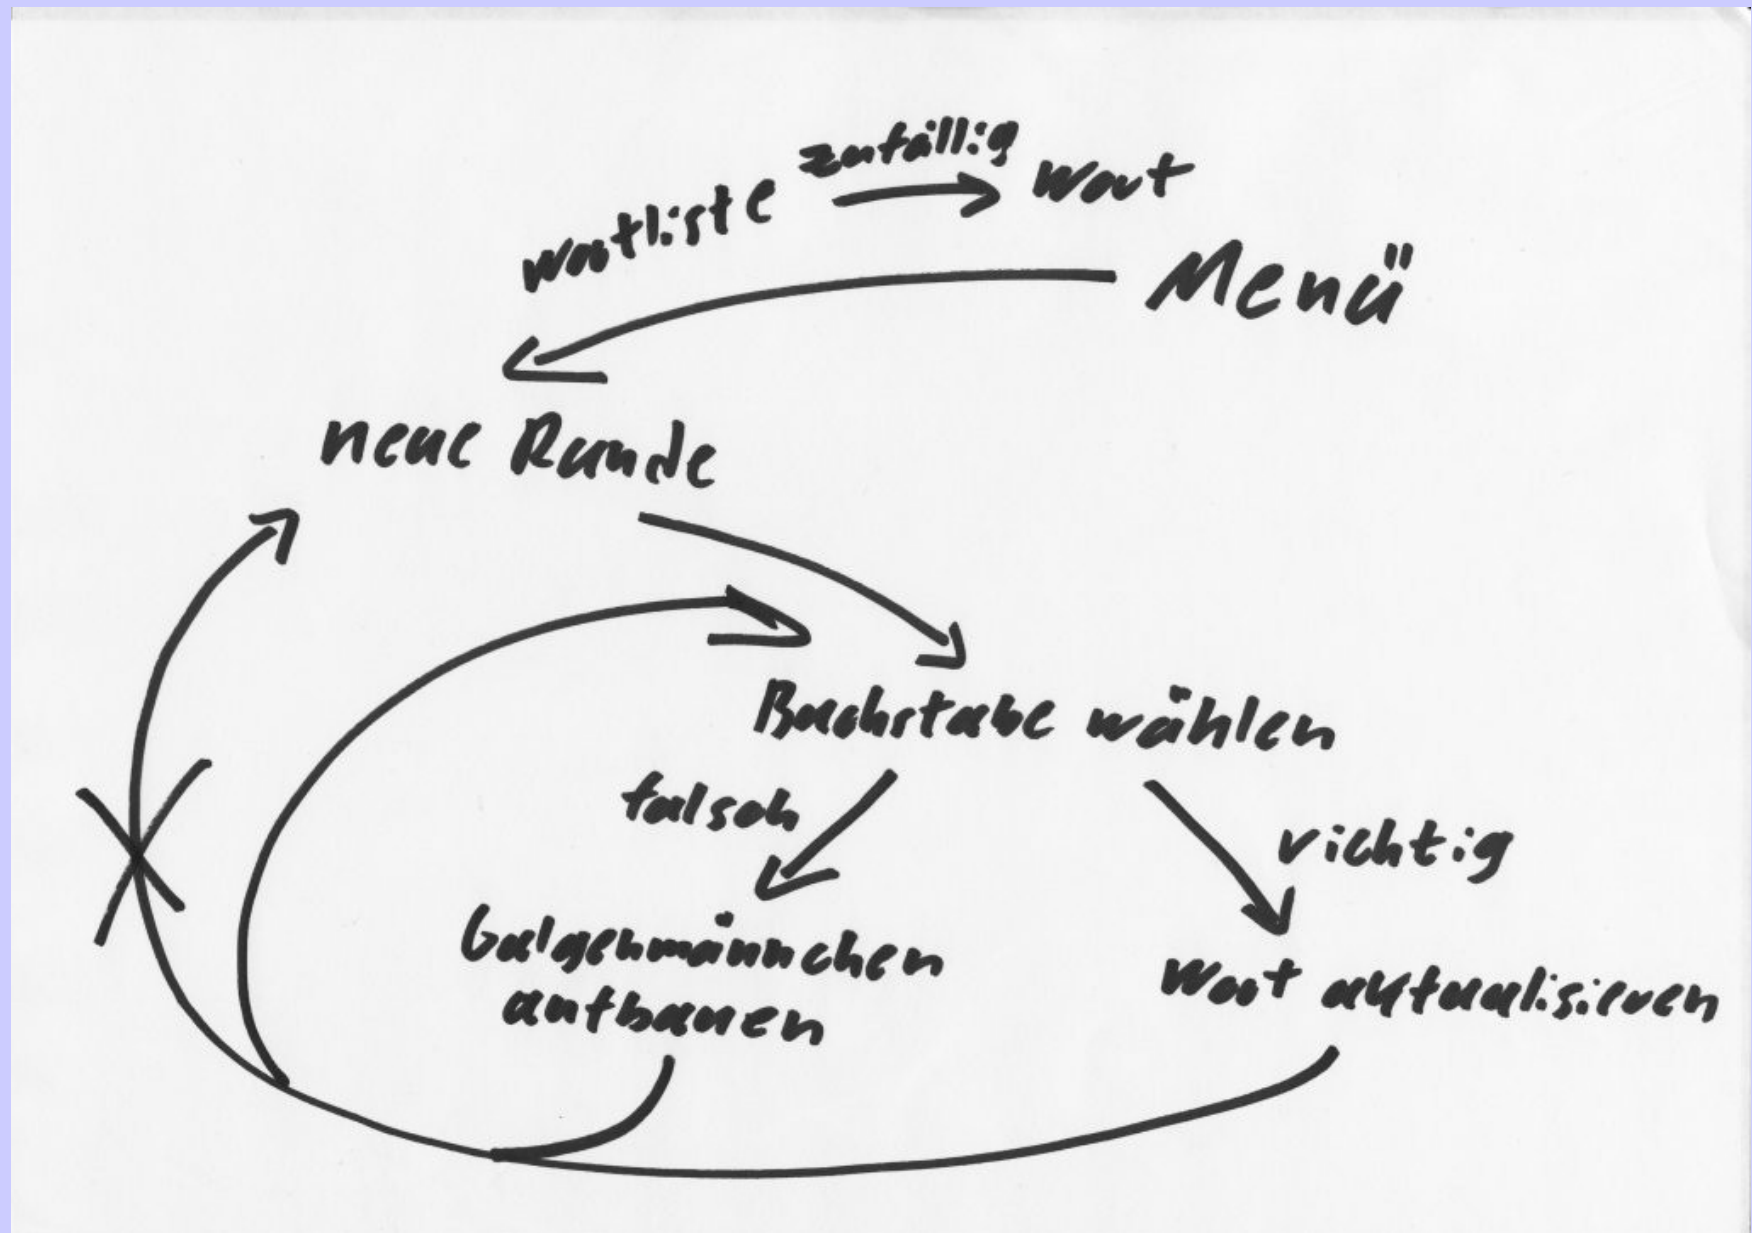 Wortliste zufällig Wort
Menü
neue Runde
Buchstabe wählen
falsch
richtig
Galgenmännchen
aufbauen
Wort aktualisieren